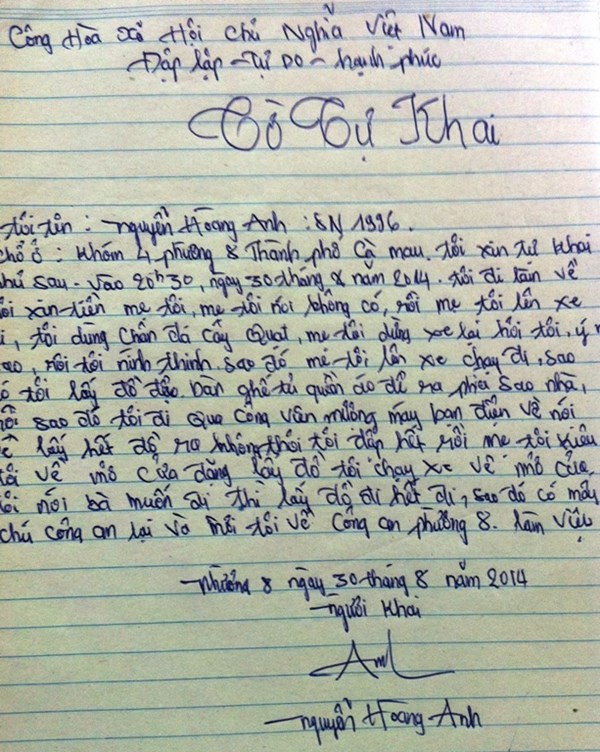 Công Hoà Xả Hội Chủ Nghĩa Việt Nam
Độp lập - Tự Do - hạnh phúc
Cờ Tự Khai
tôi tên : nguyễn Hoàng Anh : SN 1996.
chổ ở : khóm 4 phường 8 Thành phố Cà mau. tôi xin tự khai
như sau. vào 20h30, ngày 30 tháng 8 năm 2014. tôi đi làm về
tôi xin tiền mẹ tôi, mẹ tôi nói không có, rồi mẹ tôi lên xe
đi, tôi dùng chân đá cây quạt, mẹ tôi dừng xe lại hỏi tôi, ý m
sao, rồi tôi nính thinh. sao đó mẹ tôi lên xe chạy đi, sao
đó tôi lấy đồ đạc bàn ghế tủ quần áo để ra phía sao nhà,
rồi sao đó tôi đi qua công văn mường mấy bạn diện về nói
về lấy hết đồ ra không thôi tôi đập hết rồi mẹ tôi kiêu
tôi về mở cửa đặng lấy đồ tôi chạy xe về mở cửa,
tôi nói bà muốn đi thì lấy đồ đi hết đi, sao đó có mấy
chú công an lại và mời tôi về công an phường 8. làm việc
Phường 8 ngày 30 tháng 8 năm 2014
người khai
Anh
nguyễn Hoàng Anh